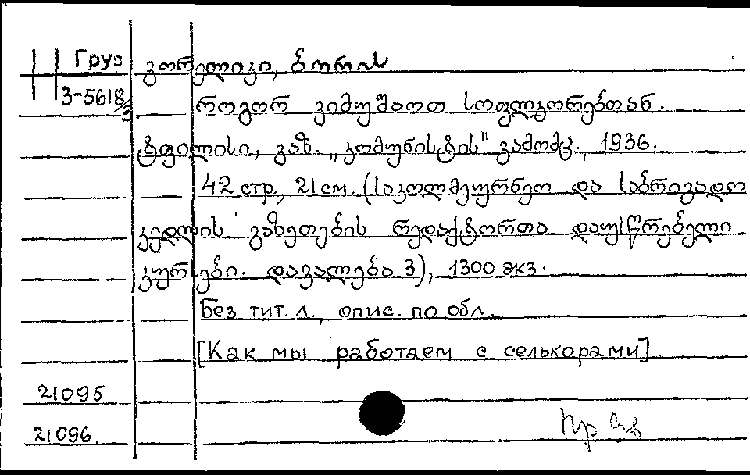 Груз
3-5618
გორელიკი, ბორის
როგორ ვიმუშაოთ სოფლკორებთან.
ტფილისი, გაზ. „კომუნისტის" გამომც., 1936.
42 стр., 21 см. (საკოლმეურნეო და საბრიგადო
კედლის გაზეთების რედაქტორთა დაუსწრებელი
კურსები. დავალება 3), 1300 экз.
Без тит. л., опис. по обл.
[Как мы работаем с селькорами]
21095
21096